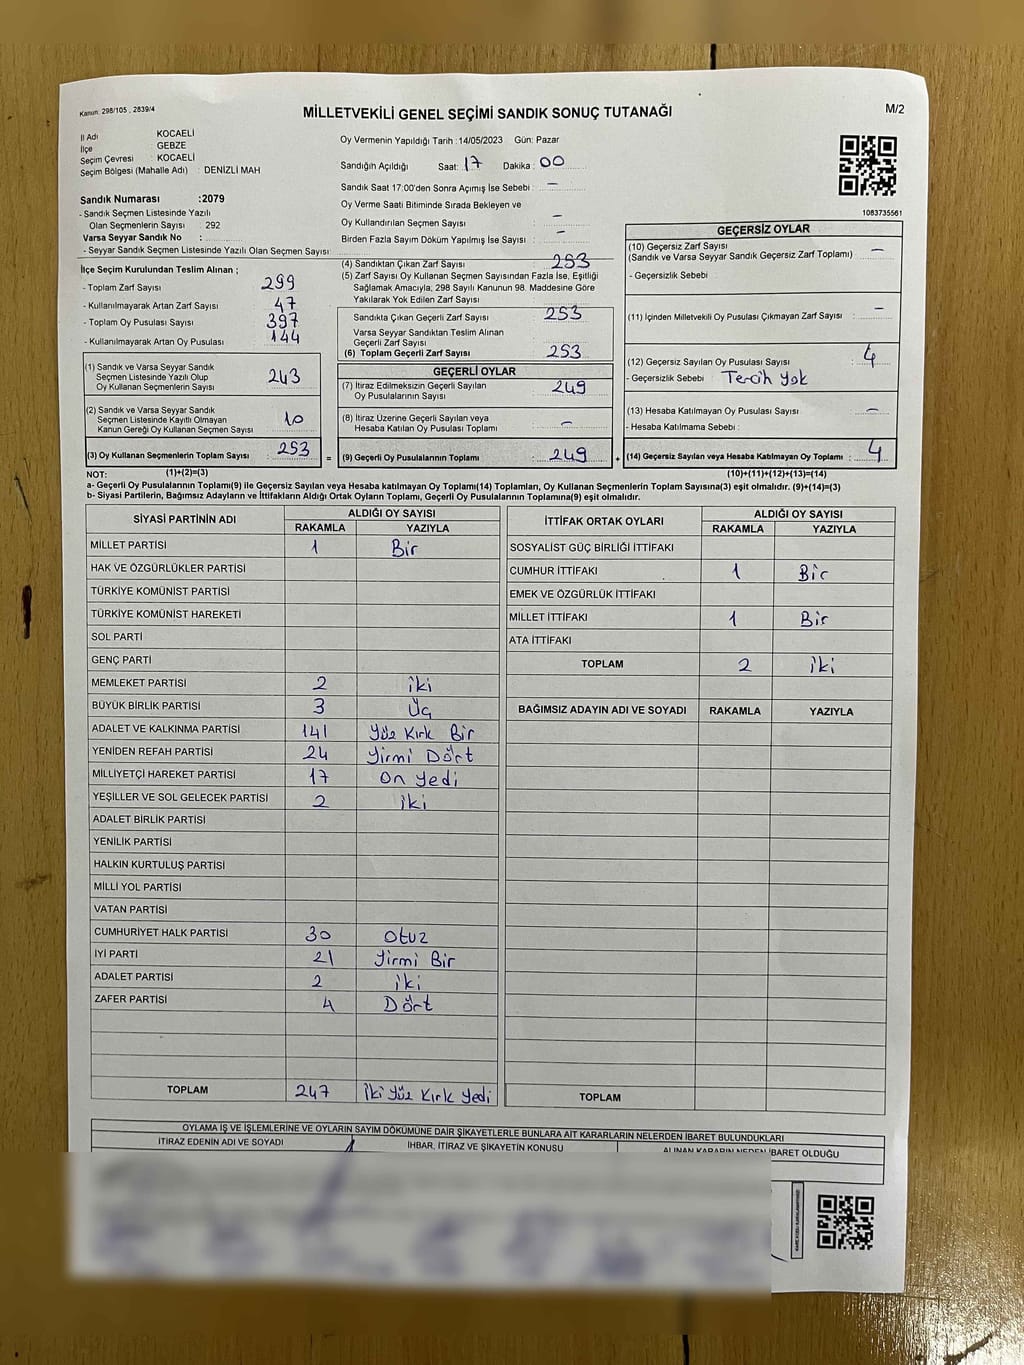 Kanun: 298/105 , 2839/4
MİLLETVEKİLİ GENEL SEÇİMİ SANDIK SONUÇ TUTANAĞI
M/2
İl Adı KOCAELİ
İlçe GEBZE
Seçim Çevresi : KOCAELİ
Seçim Bölgesi (Mahalle Adı) : DENİZLİ MAH
Sandık Numarası :2079
- Sandık Seçmen Listesinde Yazılı
Olan Seçmenlerin Sayısı : 292
Varsa Seyyar Sandık No :
- Seyyar Sandık Seçmen Listesinde Yazılı Olan Seçmen Sayısı:
Oy Vermenin Yapıldığı Tarih :14/05/2023 Gün: Pazar
Sandığın Açıldığı Saat: 17 Dakika : 00
Sandık Saat 17:00'den Sonra Açımış İse Sebebi : –
Oy Verme Saati Bitiminde Sırada Bekleyen ve
Oy Kullandırılan Seçmen Sayısı : –
Birden Fazla Sayım Döküm Yapılmış İse Sayısı : –
1083735561
İlçe Seçim Kurulundan Teslim Alınan ;
- Toplam Zarf Sayısı 299
- Kullanılmayarak Artan Zarf Sayısı 47
- Toplam Oy Pusulası Sayısı 397
- Kullanılmayarak Artan Oy Pusulası 144
(1) Sandık ve Varsa Seyyar Sandık
Seçmen Listesinde Yazılı Olup
Oy Kullanan Seçmenlerin Sayısı 243
(2) Sandık ve Varsa Seyyar Sandık
Seçmen Listesinde Kayıtlı Olmayan
Kanun Gereği Oy Kullanan Seçmen Sayısı 10
(3) Oy Kullanan Seçmenlerin Toplam Sayısı : 253
(4) Sandıktan Çıkan Zarf Sayısı : 253
(5) Zarf Sayısı Oy Kullanan Seçmen Sayısından Fazla İse, Eşitliği
Sağlamak Amacıyla, 298 Sayılı Kanunun 98. Maddesine Göre
Yakılarak Yok Edilen Zarf Sayısı :
Sandıkta Çıkan Geçerli Zarf Sayısı : 253
Varsa Seyyar Sandıktan Teslim Alınan
Geçerli Zarf Sayısı :
(6) Toplam Geçerli Zarf Sayısı : 253
GEÇERLİ OYLAR
(7) İtiraz Edilmeksizin Geçerli Sayılan
Oy Pusulalarının Sayısı : 249
(8) İtiraz Üzerine Geçerli Sayılan veya
Hesaba Katılan Oy Pusulası Toplamı : –
= (9) Geçerli Oy Pusulalarının Toplamı : 249
GEÇERSİZ OYLAR
(10) Geçersiz Zarf Sayısı
(Sandık ve Varsa Seyyar Sandık Geçersiz Zarf Toplamı) : –
- Geçersizlik Sebebi :
(11) İçinden Milletvekili Oy Pusulası Çıkmayan Zarf Sayısı : –
(12) Geçersiz Sayılan Oy Pusulası Sayısı : 4
- Geçersizlik Sebebi : Tercih Yok
(13) Hesaba Katılmayan Oy Pusulası Sayısı : –
- Hesaba Katılmama Sebebi :
+ (14) Geçersiz Sayılan veya Hesaba Katılmayan Oy Toplamı : 4
NOT: (1)+(2)=(3) (10)+(11)+(12)+(13)=(14)
a- Geçerli Oy Pusulalarının Toplamı(9) ile Geçersiz Sayılan veya Hesaba Katılmayan Oy Toplamı(14) Toplamları, Oy Kullanan Seçmenlerin Toplam Sayısına(3) eşit olmalıdır. (9)+(14)=(3)
b- Siyasi Partilerin, Bağımsız Adayların ve İttifakların Aldığı Ortak Oyların Toplamı, Geçerli Oy Pusulalarının Toplamına(9) eşit olmalıdır.
SİYASİ PARTİNİN ADI ALDIĞI OY SAYISI
RAKAMLA YAZIYLA
MİLLET PARTİSİ 1 Bir
HAK VE ÖZGÜRLÜKLER PARTİSİ
TÜRKİYE KOMÜNİST PARTİSİ
TÜRKİYE KOMÜNİST HAREKETİ
SOL PARTİ
GENÇ PARTİ
MEMLEKET PARTİSİ 2 iki
BÜYÜK BİRLİK PARTİSİ 3 Üç
ADALET VE KALKINMA PARTİSİ 141 Yüz Kırk Bir
YENİDEN REFAH PARTİSİ 24 Yirmi Dört
MİLLİYETÇİ HAREKET PARTİSİ 17 On Yedi
YEŞİLLER VE SOL GELECEK PARTİSİ 2 iki
ADALET BİRLİK PARTİSİ
YENİLİK PARTİSİ
HALKIN KURTULUŞ PARTİSİ
MİLLİ YOL PARTİSİ
VATAN PARTİSİ
CUMHURİYET HALK PARTİSİ 30 Otuz
İYİ PARTİ 21 Yirmi Bir
ADALET PARTİSİ 2 iki
ZAFER PARTİSİ 4 Dört
TOPLAM 247 İki Yüz Kırk Yedi
İTTİFAK ORTAK OYLARI ALDIĞI OY SAYISI
RAKAMLA YAZIYLA
SOSYALİST GÜÇ BİRLİĞİ İTTİFAKI
CUMHUR İTTİFAKI 1 Bir
EMEK VE ÖZGÜRLÜK İTTİFAKI
MİLLET İTTİFAKI 1 Bir
ATA İTTİFAKI
TOPLAM 2 iki
BAĞIMSIZ ADAYIN ADI VE SOYADI RAKAMLA YAZIYLA
TOPLAM
OYLAMA İŞ VE İŞLEMLERİNE VE OYLARIN SAYIM DÖKÜMÜNE DAİR ŞİKAYETLERLE BUNLARA AİT KARARLARIN NELERDEN İBARET BULUNDUKLARI
İTİRAZ EDENİN ADI VE SOYADI İHBAR, İTİRAZ VE ŞİKAYETİN KONUSU ALINAN KARARIN NEDEN İBARET OLDUĞU